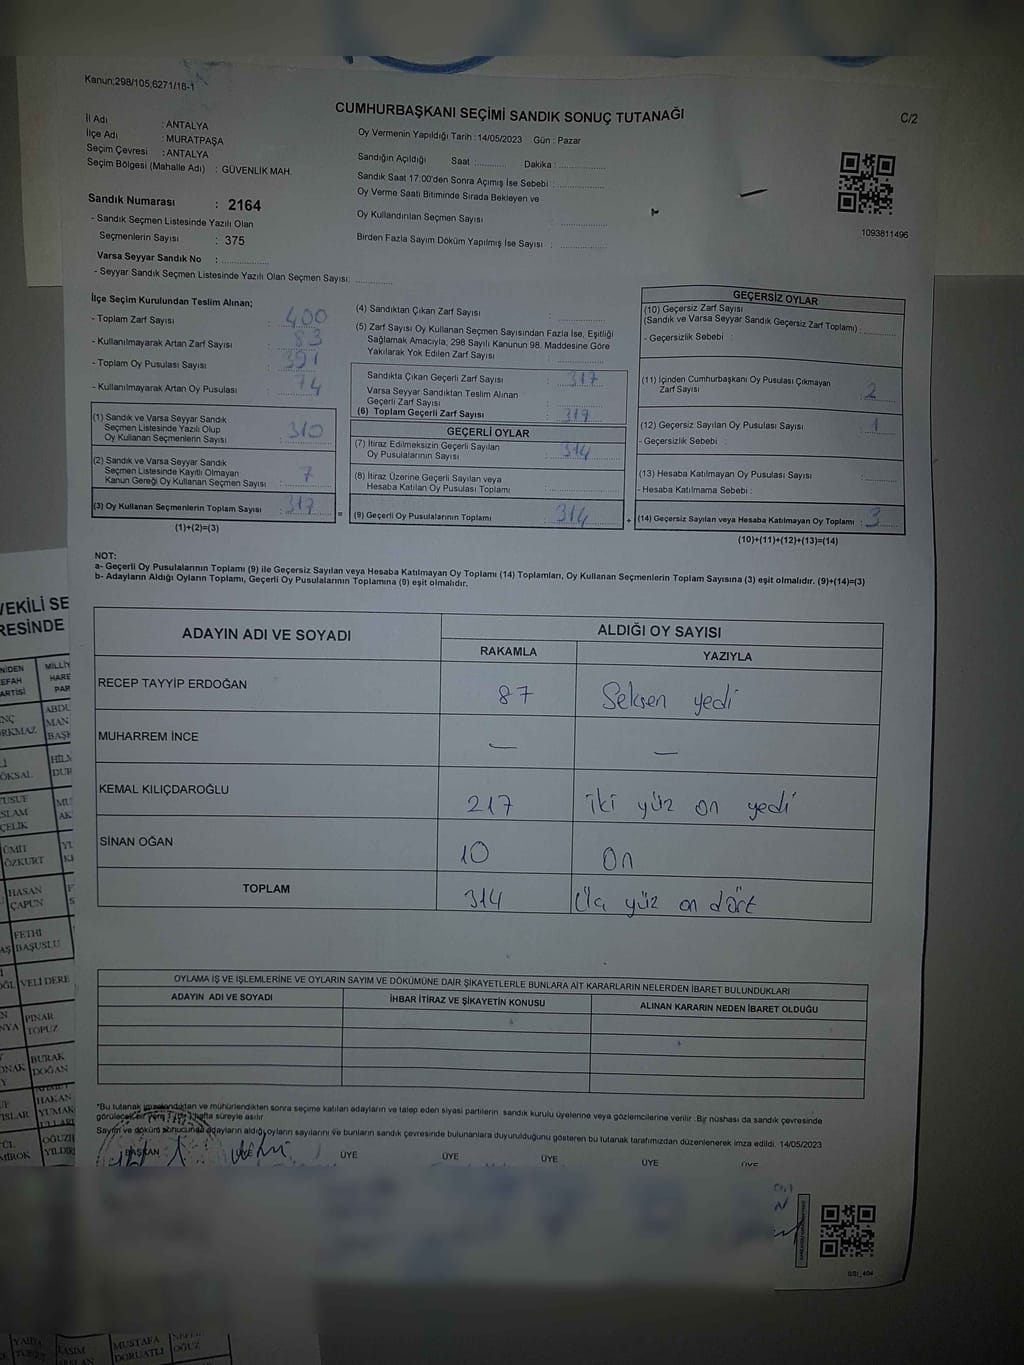 Kanun,298/105,6271/16-1
CUMHURBAŞKANI SEÇİMİ SANDIK SONUÇ TUTANAĞI
C/2
İl Adı : ANTALYA
İlçe Adı : MURATPAŞA
Seçim Çevresi : ANTALYA
Seçim Bölgesi (Mahalle Adı) : GÜVENLİK MAH.
Sandık Numarası : 2164
- Sandık Seçmen Listesinde Yazılı Olan
Seçmenlerin Sayısı : 375
Varsa Seyyar Sandık No :
- Seyyar Sandık Seçmen Listesinde Yazılı Olan Seçmen Sayısı:
Oy Vermenin Yapıldığı Tarih : 14/05/2023 Gün : Pazar
Sandığın Açıldığı Saat : Dakika :
Sandık Saat 17:00'den Sonra Açımış İse Sebebi :
Oy Verme Saati Bitiminde Sırada Bekleyen ve
Oy Kullandırılan Seçmen Sayısı
Birden Fazla Sayım Döküm Yapılmış İse Sayısı :
1093811496
İlçe Seçim Kurulundan Teslim Alınan;
- Toplam Zarf Sayısı : 400
- Kullanılmayarak Artan Zarf Sayısı : 83
- Toplam Oy Pusulası Sayısı : 391
- Kullanılmayarak Artan Oy Pusulası : 74
(1) Sandık ve Varsa Seyyar Sandık
Seçmen Listesinde Yazılı Olup
Oy Kullanan Seçmenlerin Sayısı : 310
(2) Sandık ve Varsa Seyyar Sandık
Seçmen Listesinde Kayıtlı Olmayan
Kanun Gereği Oy Kullanan Seçmen Sayısı : 7
(3) Oy Kullanan Seçmenlerin Toplam Sayısı : 317
(1)+(2)=(3)
(4) Sandıktan Çıkan Zarf Sayısı :
(5) Zarf Sayısı Oy Kullanan Seçmen Sayısından Fazla İse, Eşitliği
Sağlamak Amacıyla; 298 Sayılı Kanunun 98. Maddesine Göre
Yakılarak Yok Edilen Zarf Sayısı :
Sandıkta Çıkan Geçerli Zarf Sayısı : 317
Varsa Seyyar Sandıktan Teslim Alınan
Geçerli Zarf Sayısı :
(6) Toplam Geçerli Zarf Sayısı : 317
GEÇERLİ OYLAR
(7) İtiraz Edilmeksizin Geçerli Sayılan
Oy Pusulalarının Sayısı : 314
(8) İtiraz Üzerine Geçerli Sayılan veya
Hesaba Katılan Oy Pusulası Toplamı :
= (9) Geçerli Oy Pusulalarının Toplamı : 314
GEÇERSİZ OYLAR
(10) Geçersiz Zarf Sayısı
(Sandık ve Varsa Seyyar Sandık Geçersiz Zarf Toplamı)
- Geçersizlik Sebebi :
(11) İçinden Cumhurbaşkanı Oy Pusulası Çıkmayan
Zarf Sayısı : 2
(12) Geçersiz Sayılan Oy Pusulası Sayısı : 1
- Geçersizlik Sebebi :
(13) Hesaba Katılmayan Oy Pusulası Sayısı :
- Hesaba Katılmama Sebebi :
+ (14) Geçersiz Sayılan veya Hesaba Katılmayan Oy Toplamı : 3
(10)+(11)+(12)+(13)=(14)
NOT:
a- Geçerli Oy Pusulalarının Toplamı (9) ile Geçersiz Sayılan veya Hesaba Katılmayan Oy Toplamı (14) Toplamları, Oy Kullanan Seçmenlerin Toplam Sayısına (3) eşit olmalıdır. (9)+(14)=(3)
b- Adayların Aldığı Oyların Toplamı, Geçerli Oy Pusulalarının Toplamına (9) eşit olmalıdır.
ADAYIN ADI VE SOYADI
ALDIĞI OY SAYISI
RAKAMLA YAZIYLA
RECEP TAYYİP ERDOĞAN 87 Seksen yedi
MUHARREM İNCE — —
KEMAL KILIÇDAROĞLU 217 iki yüz on yedi
SİNAN OĞAN 10 On
TOPLAM 314 Üç yüz on dört
OYLAMA İŞ VE İŞLEMLERİNE VE OYLARIN SAYIM VE DÖKÜMÜNE DAİR ŞİKAYETLERLE BUNLARA AİT KARARLARIN NELERDEN İBARET BULUNDUKLARI
ADAYIN ADI VE SOYADI İHBAR İTİRAZ VE ŞİKAYETİN KONUSU ALINAN KARARIN NEDEN İBARET OLDUĞU
*Bu tutanak imzalandıktan ve mühürlendikten sonra seçime katılan adayların ve talep eden siyasi partilerin sandık kurulu üyelerine veya gözlemcilerine verilir. Bir nüshası da sandık çevresinde
görülecek bir yere 1 (bir) hafta süreyle asılır.
Sayım ve döküm sonucunda adayların aldığı oyların sayılarını ve bunların sandık çevresinde bulunanlara duyurulduğunu gösteren bu tutanak tarafımızdan düzenlenerek imza edildi. 14/05/2023
BAŞKAN ÜYE ÜYE ÜYE ÜYE ÜYE
GSI_404
VEKİLİ SE
RESİNDE
NİDEN
EFAH
ARTİSİ
MİLLİY
HARE
PAR
RKMAZ
ABDU
MAN
BAŞK
ÖKSAL
HİLM
DUR
YUSUF
SLAM
ÇELİK
MU
AK
ÜMİT
ÖZKURT
HASAN
ÇAPUN
FETHİ
BAŞUSLU
VELİ DERE
PINAR
TOPUZ
BURAK
DOĞAN
HAKAN
YUMAK
OĞUZH
YILDIR
MUSTAFA
DORUATLI
OĞUZ